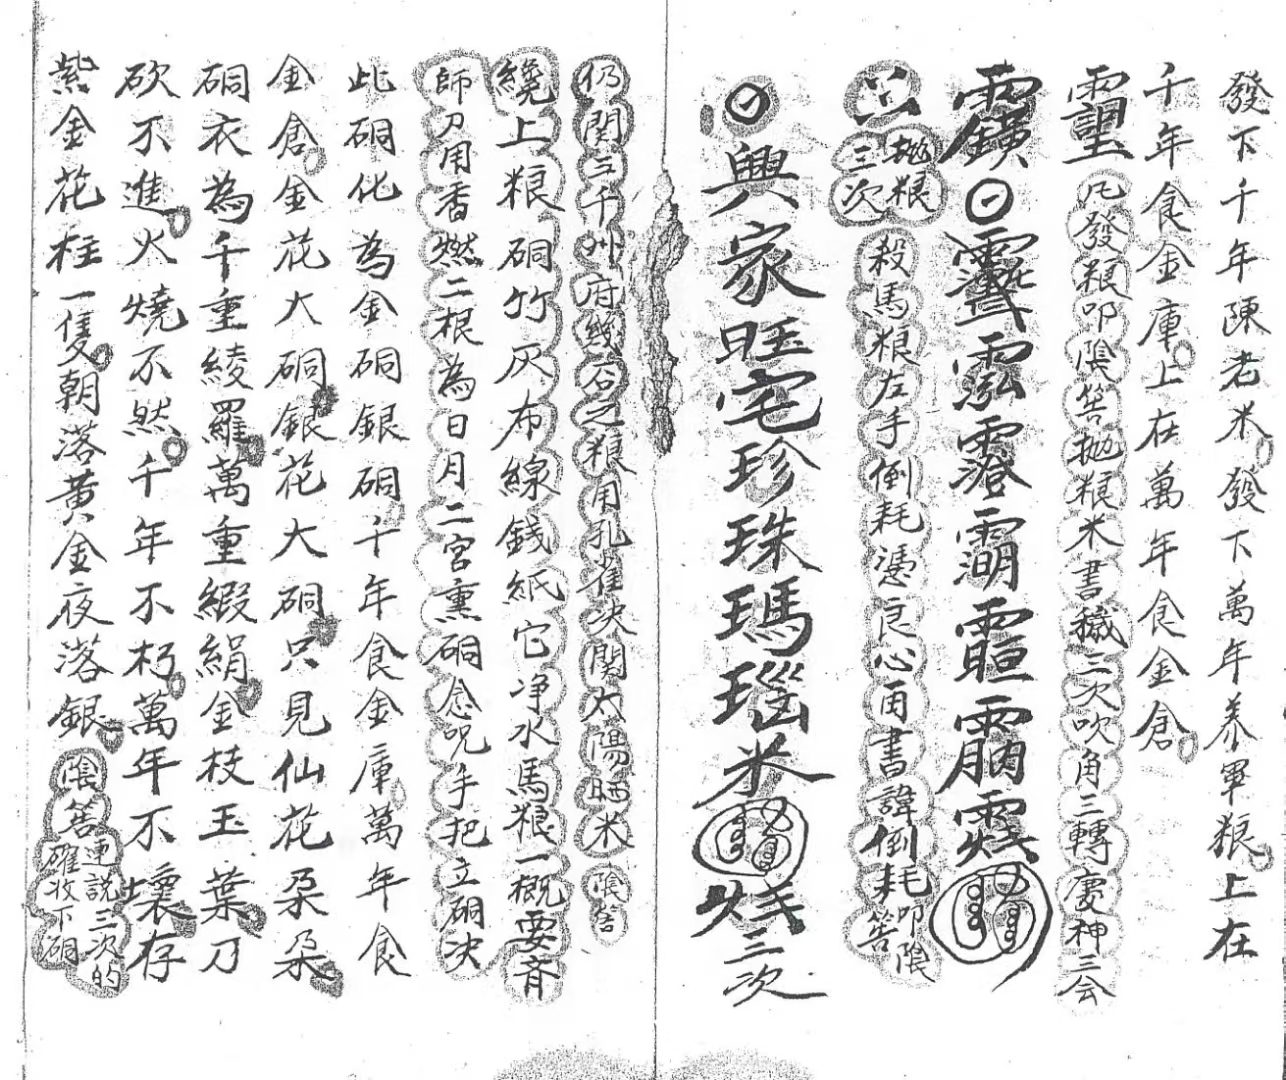 發下千年陳老米發下萬年养軍粮上在
千年食金庫上在萬年食金倉
凡發粮叩陰筶抛粮米書穢三次吹角三轉慶神三会
抛粮三次
殺馬粮左手倒耗憑良心用書諱倒耗叩陰筶
興家旺宅珍珠瑪瑙米
三次
仍関三千州府幾石之粮用孔雀决関太陽晒米陰筶
纔上粮硐竹灰布線錢紙它净水馬粮一概要斉
師刀用香燃二根為日月二宮熏硐念咒手把立硐决
此硐化為金硐銀硐千年食金庫萬年食
金倉金花大硐銀花大硐只見仙花朶朶
硐衣為千重綾羅萬重緞絹金枝玉葉刀
砍不進火燒不然千年不朽萬年不壞存
紫金花柱一隻朝落黄金夜落銀
陰筶連説三次的確收下硐